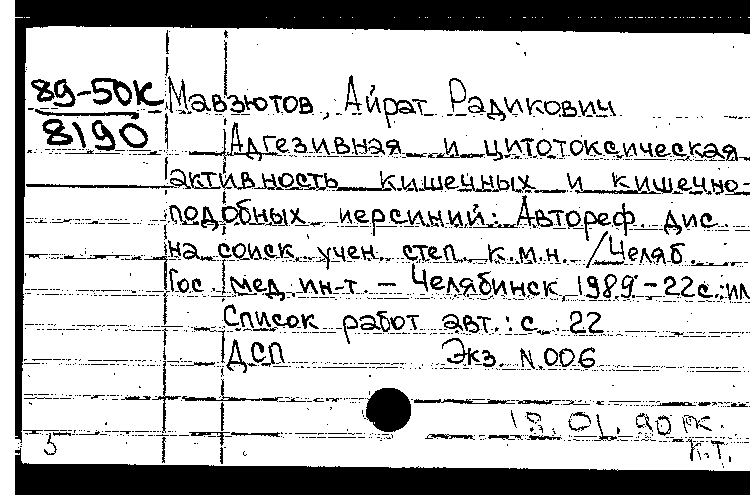 89-50К Мавзютов, Айрат Радикович
8190 Адгезивная и цитотоксическая
активность кишечных и кишечно-
подобных иерсиний: Автореф. дис.
на соиск. учен. степ. к.м.н. /Челяб.
Гос. мед. ин-т. – Челябинск, 1989 – 22 с.: ил
Список работ авт.: с. 22
ДСП Экз. N.006
18.01.90 РК.
5 К.Т.